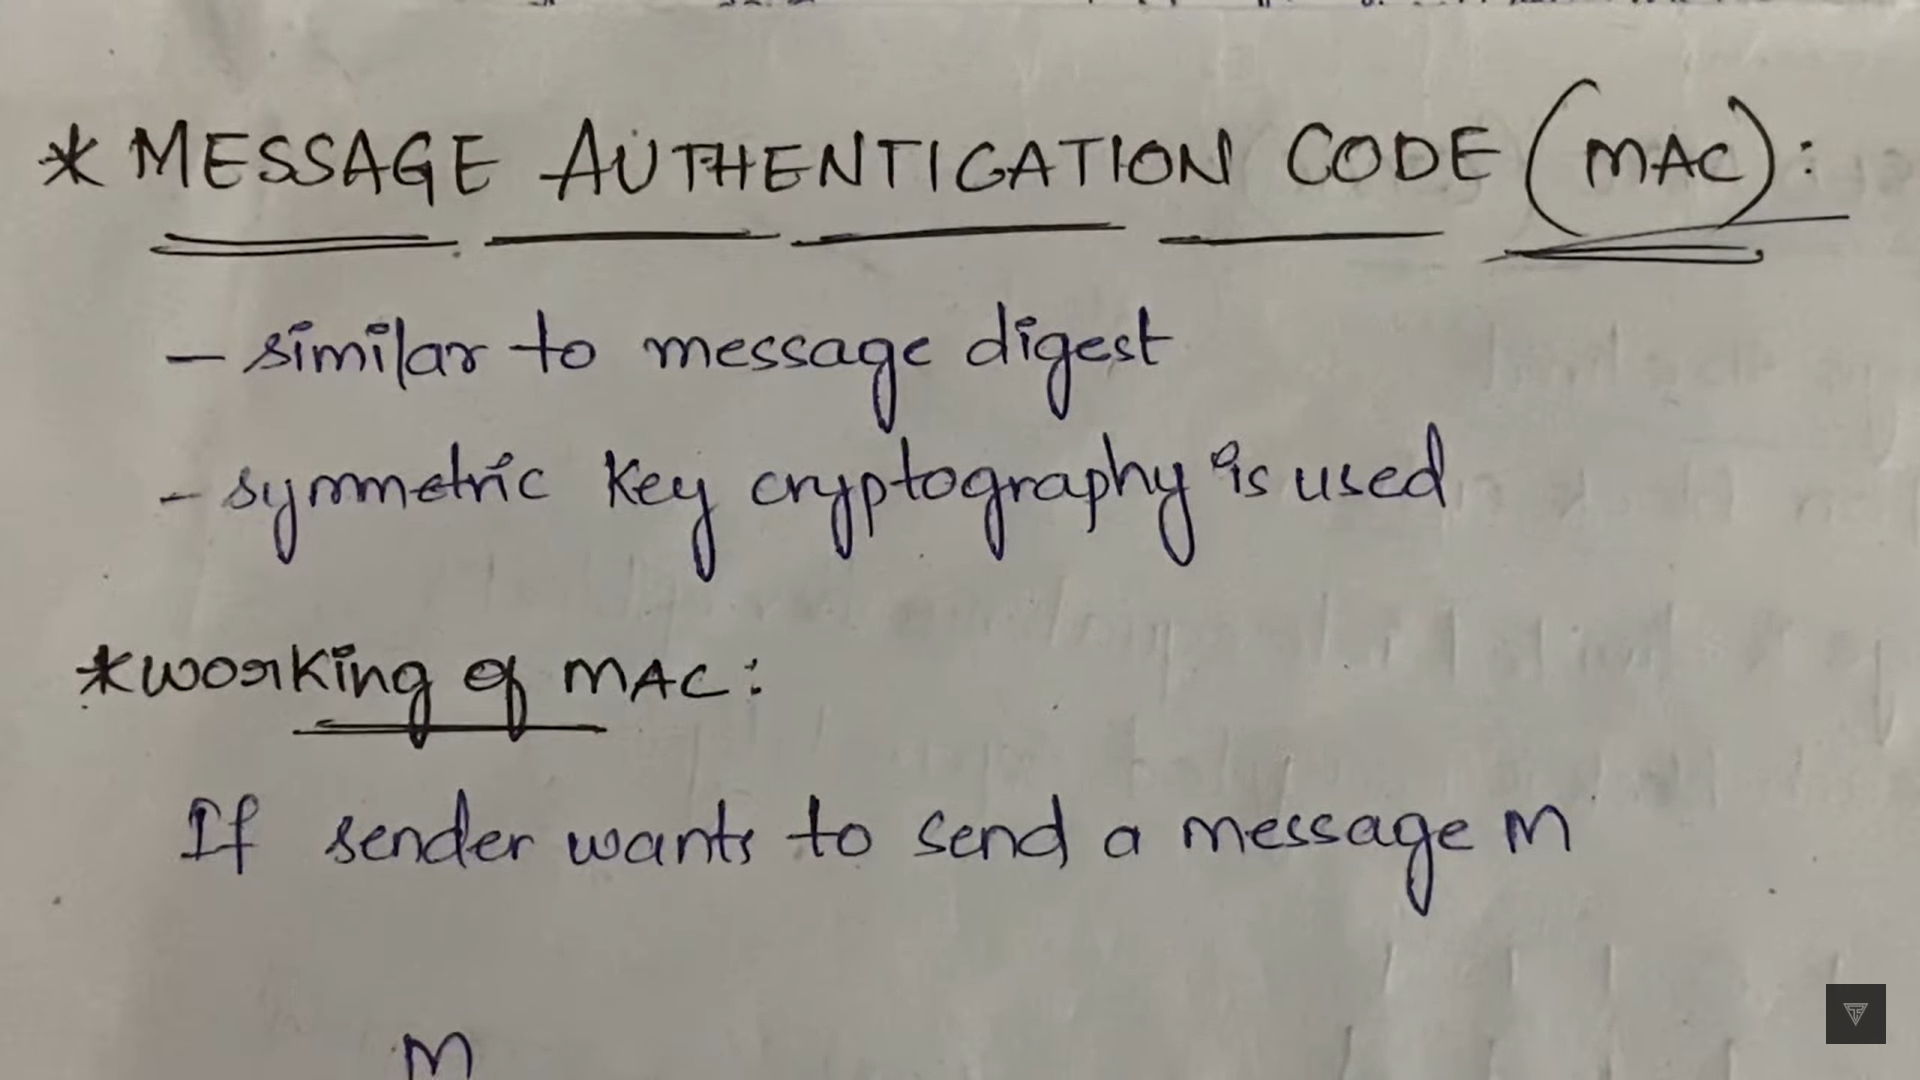 * MESSAGE AUTHENTICATION CODE (MAC):
- similar to message digest
- symmetric key cryptography is used
* working of MAC:
If sender wants to send a message M
M